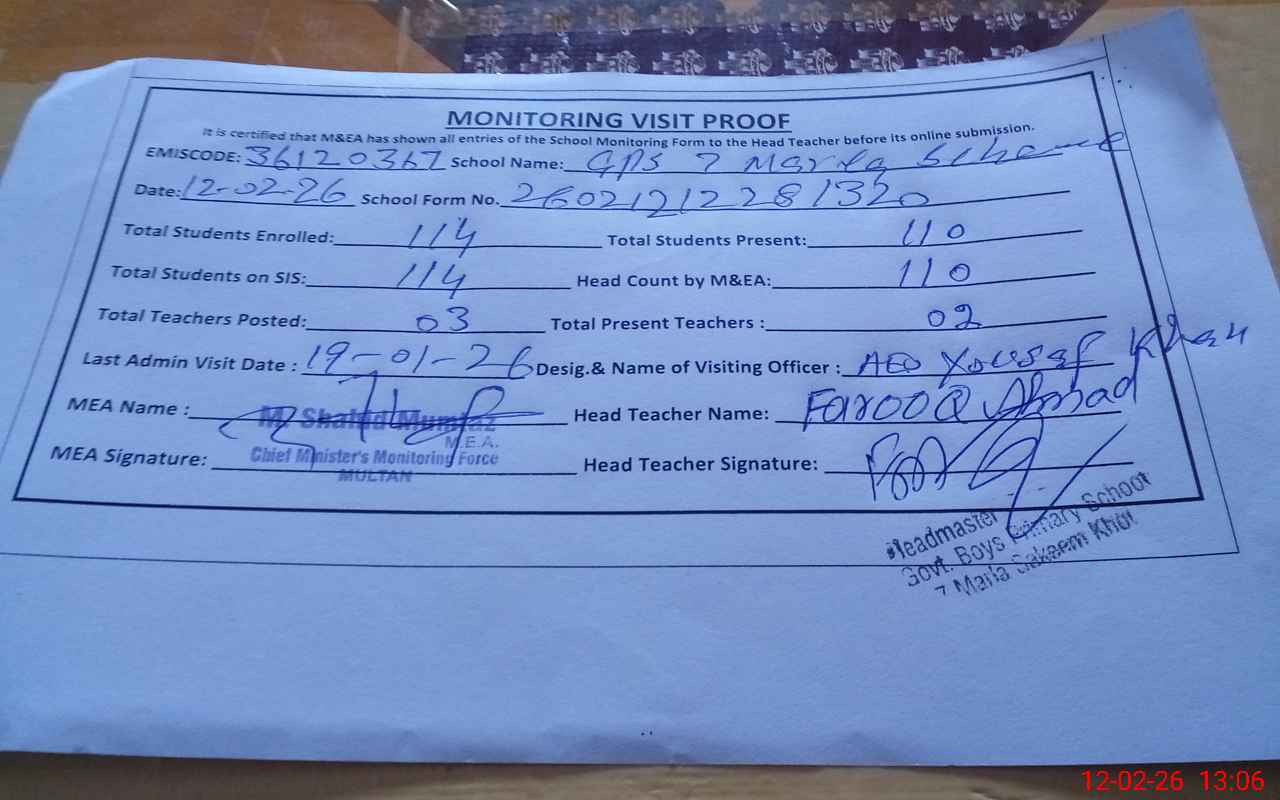 MONITORING VISIT PROOF
It is certified that M&EA has shown all entries of the School Monitoring Form to the Head Teacher before its online submission.
EMISCODE: 36120367 School Name: GPS 7 Marla Scheme
Date: 12-02-26 School Form No. 2602121228 1320
Total Students Enrolled: 114 Total Students Present: 110
Total Students on SIS: 114 Head Count by M&EA: 110
Total Teachers Posted: 03 Total Present Teachers : 02
Last Admin Visit Date : 19-01-26 Desig.& Name of Visiting Officer : AEO Yousaf Khan
MEA Name : M. Shahid Mumtaz Head Teacher Name: Farooq Ahmad
M.E.A.
MEA Signature: Chief Minister's Monitoring Force Head Teacher Signature:
MULTAN
Headmaster
Govt. Boys Primary School
7 Marla Sakeem Khor
12-02-26 13:06